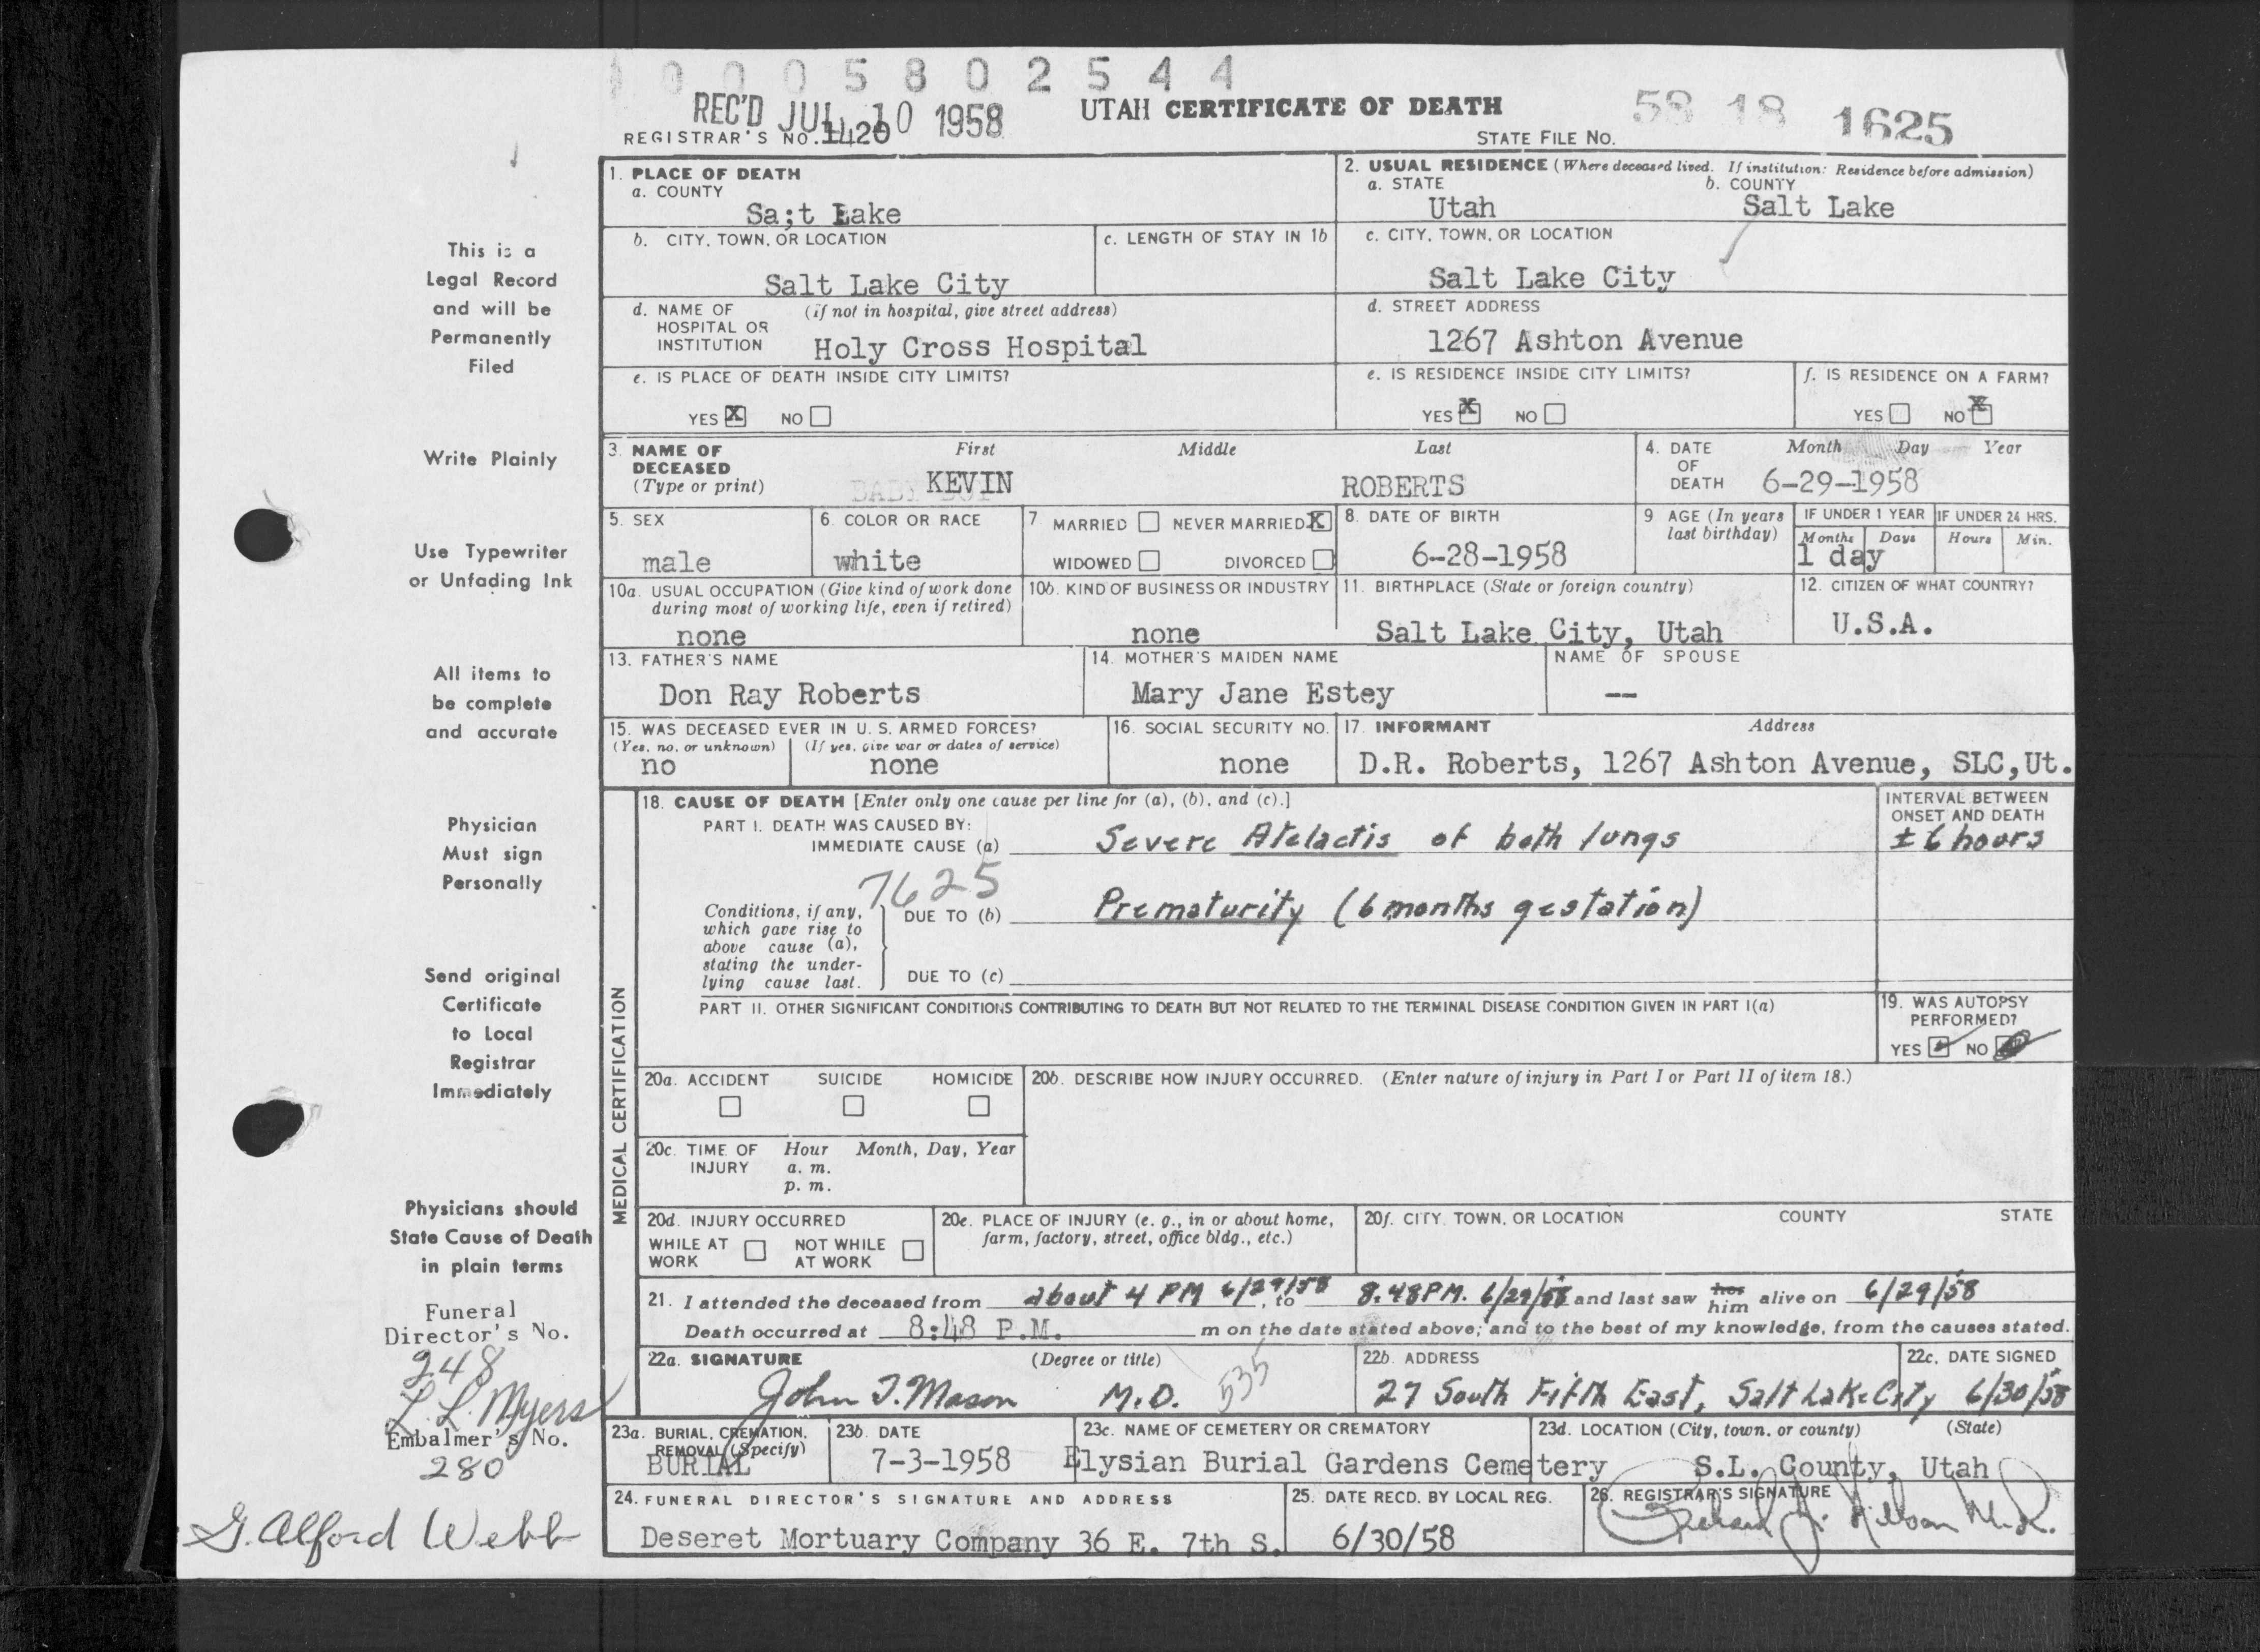 0 0 0 5 8 0 2 5 4 4
REC'D JUL 10 1958
UTAH CERTIFICATE OF DEATH
58 18 1625
REGISTRAR'S NO. 1420
STATE FILE NO.
1. PLACE OF DEATH
a. COUNTY
Sa;t Lake
2. USUAL RESIDENCE (Where deceased lived. If institution: Residence before admission)
a. STATE b. COUNTY
Utah Salt Lake
b. CITY, TOWN, OR LOCATION
Salt Lake City
c. LENGTH OF STAY IN 1b
c. CITY, TOWN, OR LOCATION
Salt Lake City
d. NAME OF HOSPITAL OR INSTITUTION (if not in hospital, give street address)
Holy Cross Hospital
d. STREET ADDRESS
1267 Ashton Avenue
e. IS PLACE OF DEATH INSIDE CITY LIMITS?
YES X NO
e. IS RESIDENCE INSIDE CITY LIMITS?
YES X NO
f. IS RESIDENCE ON A FARM?
YES NO X
3. NAME OF DECEASED (Type or print)
First Middle Last
KEVIN ROBERTS
4. DATE OF DEATH Month Day Year
6-29-1958
5. SEX
male
6. COLOR OR RACE
white
7 MARRIED NEVER MARRIED X
WIDOWED DIVORCED
8. DATE OF BIRTH
6-28-1958
9 AGE (In years last birthday)
IF UNDER 1 YEAR IF UNDER 24 HRS.
Months Days Hours Min.
1 day
10a. USUAL OCCUPATION (Give kind of work done during most of working life, even if retired)
none
10b. KIND OF BUSINESS OR INDUSTRY
none
11. BIRTHPLACE (State or foreign country)
Salt Lake City, Utah
12. CITIZEN OF WHAT COUNTRY?
U.S.A.
13. FATHER'S NAME
Don Ray Roberts
14. MOTHER'S MAIDEN NAME
Mary Jane Estey
NAME OF SPOUSE
--
15. WAS DECEASED EVER IN U. S. ARMED FORCES?
(Yes, no, or unknown) (If yes, give war or dates of service)
no none
16. SOCIAL SECURITY NO.
none
17. INFORMANT Address
D.R. Roberts, 1267 Ashton Avenue, SLC,Ut.
18. CAUSE OF DEATH [Enter only one cause per line for (a), (b), and (c).]
PART I. DEATH WAS CAUSED BY:
IMMEDIATE CAUSE (a) Severe Atelactis of both lungs
INTERVAL BETWEEN ONSET AND DEATH
± 6 hours
7625
Conditions, if any, which gave rise to above cause (a), stating the underlying cause last.
DUE TO (b) Prematurity (6 months gestation)
DUE TO (c)
PART II. OTHER SIGNIFICANT CONDITIONS CONTRIBUTING TO DEATH BUT NOT RELATED TO THE TERMINAL DISEASE CONDITION GIVEN IN PART I(a)
19. WAS AUTOPSY PERFORMED?
YES NO
MEDICAL CERTIFICATION
20a. ACCIDENT SUICIDE HOMICIDE
20b. DESCRIBE HOW INJURY OCCURRED. (Enter nature of injury in Part I or Part II of item 18.)
20c. TIME OF INJURY Hour Month, Day, Year
a. m.
p. m.
20d. INJURY OCCURRED
WHILE AT WORK NOT WHILE AT WORK
20e. PLACE OF INJURY (e. g., in or about home, farm, factory, street, office bldg., etc.)
20f. CITY, TOWN, OR LOCATION COUNTY STATE
21. I attended the deceased from about 4 PM 6/29/58, to 8:48 PM. 6/29/58 and last saw her him alive on 6/29/58
Death occurred at 8:48 P.M. m on the date stated above; and to the best of my knowledge, from the causes stated.
22a. SIGNATURE (Degree or title)
John J. Mason M.D. 535
22b. ADDRESS
27 South Fifth East, Salt Lake City
22c. DATE SIGNED
6/30/58
23a. BURIAL, CREMATION, REMOVAL (Specify)
BURIAL
23b. DATE
7-3-1958
23c. NAME OF CEMETERY OR CREMATORY
Elysian Burial Gardens Cemetery
23d. LOCATION (City, town, or county) (State)
S.L. County, Utah
24. FUNERAL DIRECTOR'S SIGNATURE AND ADDRESS
Deseret Mortuary Company 36 E. 7th S.
25. DATE RECD. BY LOCAL REG.
6/30/58
26. REGISTRAR'S SIGNATURE
This is a
Legal Record
and will be
Permanently
Filed
Write Plainly
Use Typewriter
or Unfading Ink
All items to
be complete
and accurate
Physician
Must sign
Personally
Send original
Certificate
to Local
Registrar
Immediately
Physicians should
State Cause of Death
in plain terms
Funeral
Director's No.
248
L. L. Myers
Embalmer's No.
280
G. Alford Webb